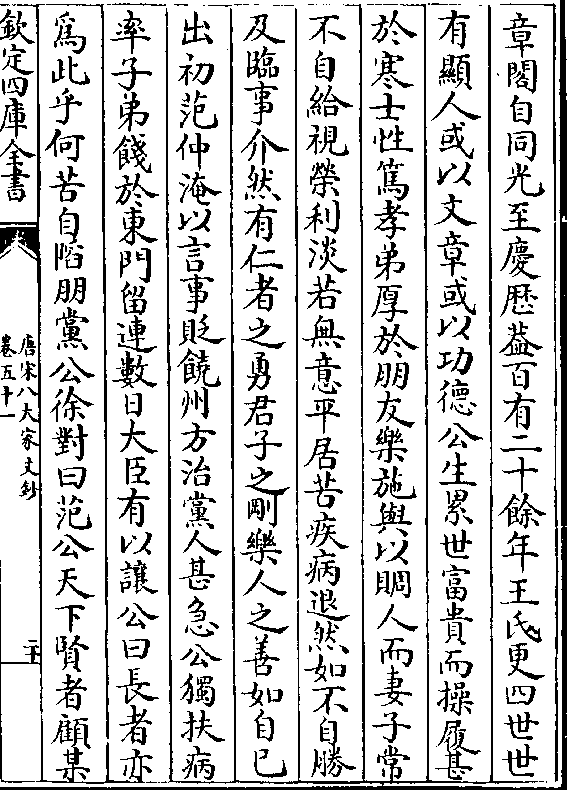 章閣自同光至慶厯葢百有二十餘年王氏更四世世
有顯人或以文章或以功德公生累世富貴而操履甚
於寒士性篤孝弟厚於朋友樂施與以賙人而妻子常
不自給視榮利淡若無意平居苦疾病退然如不自勝
及臨事介然有仁者之勇君子之剛樂人之善如自已
出初范仲淹以言事貶饒州方治黨人甚急公獨扶病
率子弟餞於東門留連數日大臣有以讓公曰長者亦
爲此乎何苦自陷朋黨公徐對曰范公天下賢者顧某
欽定四庫全書
唐宋八大家文鈔
卷五十一
二十